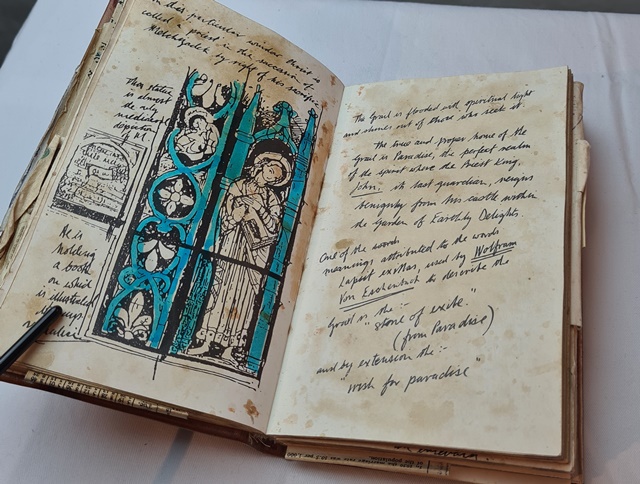 in this particular window Christ is
called a priest in the succession of
Melchizedek by right of his sacrifice
This statue
is almost
the only
mediaeval
depiction
of
He is
holding
a book
on which
is illustrated
The Grail is flooded with spiritual light
and shines out of those who seek it.
The true and proper home of the
Grail is Paradise, the perfect realm
of the spirit where the Priest King,
John, its last guardian, reigns
benignly from his castle within
the Garden of Earthly Delights
One of the words
meanings attributed to the words
Lapsit exillas, used by Wolfram
Von Eschenbach to describe the
Grail is the :-
"stone of exile."
(from Paradise)
and by extension the :-
"wish for paradise"